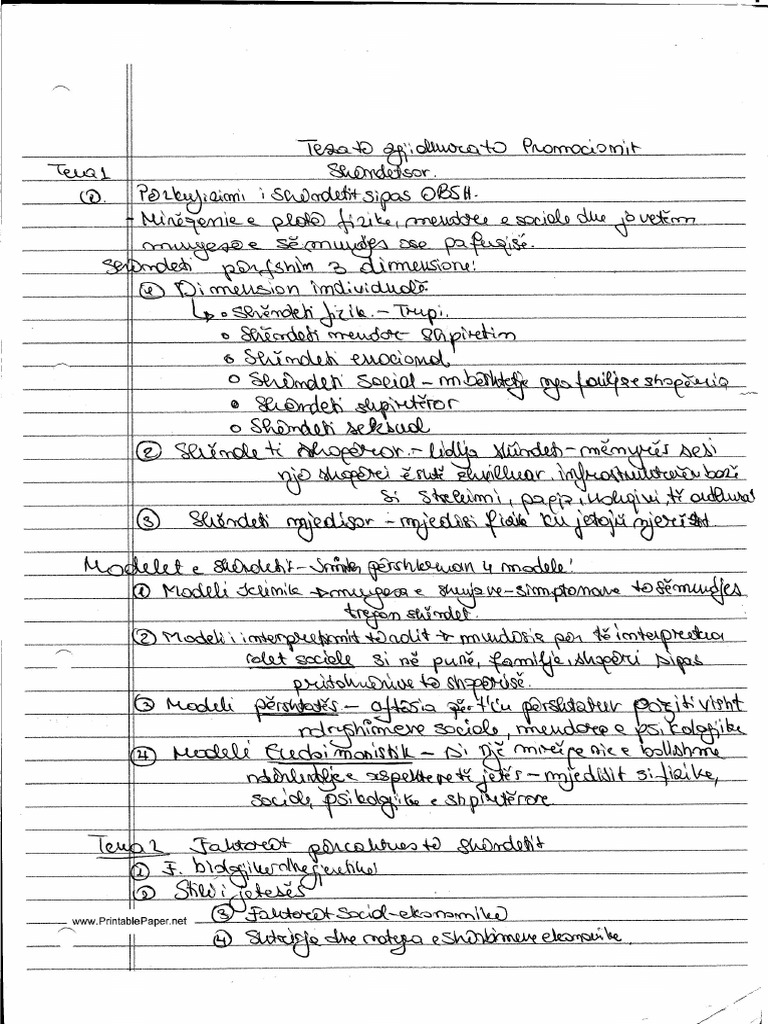 Teza të zgjidhura të Promocionit
Tema 1 Shëndetësor.
Përkufizimi i shëndetit sipas OBSH.
- Mirëqenie e plotë fizike, mendore e sociale dhe jo vetëm
mungesë e sëmundjes ose pafuqisë.
Shëndeti përfshin 3 dimensione:
① Dimension individual
↳ o Shëndeti fizik - Trupi.
o Shëndeti mendor - shpirtin
o Shëndeti emocional
o Shëndeti Social - mbështetje nga familja e shoqëria
o Shëndeti shpirtëror
o Shëndeti seksual
② Shëndeti shoqëror - lidhja shëndet - mënyrës sesi
një shoqëri është zhvilluar, infrastrukturën bazë
si strehimi, paqja, ushqimi, të ardhurat
③ Shëndeti mjedisor - mjedisi fizik ku jetojë njerëzit.
Modelet e shëndetit - Smith përshkruan 4 modele:
① Modeli klinik → mungesa e shenjave - simptomave të sëmundjes
tregon shëndet.
② Modeli i interpretimit të rolit → mundësia për të interpretua
rolet sociale si në punë, familje, shoqëri sipas
pritshmërive të shoqërisë.
③ Modeli përshtatës - aftësia për t'iu përshtatur pozitivisht
ndryshimeve sociale, mendore e psikologjike
④ Modeli Eudaimonistik - si një mirëqenie e bollshme
ndërlidhje e aspekteve të jetës - mjedisit si fizike,
sociale, psikologjike e shpirtërore.
Tema 2 Faktorët përcaktues të shëndetit
① F. biologjikë dhe gjenetikë
② Stili i jetesës
③ Faktorët Social-ekonomikë
④ e shërbimeve ekonomike.
www.PrintablePaper.net